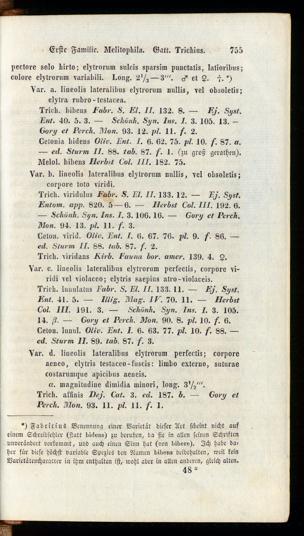 Erste Familie. Melitophila. Gatt. Trichius. 755
pectore selo hirto; elytrorum sulcis sparsim punctatis, latioribus;
colore elytrorum variabili. Long. 2½—3'''. ♂ et ♀. †. *)
Var. a. lineolis lateralibus elytrorum nullis, vel obsoletis;
elytra rubro-testacea.
Trich. bibens Fabr. S. El. II. 132. 8. — Ej. Syst.
Ent. 40. 5. 3. — Schönh. Syn. Ins. I. 3. 105. 13. —
Gory et Perch. Mon. 93. 12. pl. 11. f. 2.
Cetonia bidens Oliv. Ent. I. 6. 62. 75. pl. 10. f. 87. a.
— ed. Sturm II. 88. tab. 87. f. 1. (zu groß gerathen).
Melol. bibens Herbst Col. III. 182. 75.
Var. b. lineolis lateralibus elytrorum nullis, vel obsoletis;
corpore toto viridi.
Trich. viridulus Fabr. S. El. II. 133. 12. — Ej. Syst.
Entom. app. 820. 5—6. — Herbst Col. III. 192. 6.
— Schönh. Syn. Ins. I. 3. 106. 16. — Gory et Perch.
Mon. 94. 13. pl. 11. f. 3.
Ceton. virid. Oliv. Ent. I. 6. 67. 76. pl. 9. f. 86. —
ed. Sturm II. 88. tab. 87. f. 2.
Trich. viridans Kirb. Fauna bor. amer. 139. 4. ♀.
Var. c. lineolis lateralibus elytrorum perfectis, corpore vi-
ridi vel violaceo; elytris saepius atro-violaceis.
Trich. lunulatus Fabr. S. El. II. 133. 11. — Ej. Syst.
Ent. 41. 5. — Illig. Mag. IV. 70. 11. — Herbst
Col. III. 191. 3. — Schönh. Syn. Ins. I. 3. 105.
14. β. — Gory et Perch. Mon. 90. 8. pl. 10. f. 6.
Ceton. lunul. Oliv. Ent. I. 6. 63. 77. pl. 10. f. 88. —
ed. Sturm II. 89. tab. 87. f. 3.
Var. d. lineolis lateralibus elytrorum perfectis; corpore
aeneo, elytris testaceo-fuscis: limbo externo, suturae
costarumque apicibus aeneis.
a. magnitudine dimidia minori, long. 3½'''.
Trich. affinis Dej. Cat. 3. ed. 187. b. — Gory et
Perch. Mon. 93. 11. pl. 11. f. 1.
*) Fabricius Benennung einer Varietät dieser Art scheint nicht auf
einem Schreibfehler (statt bidens) zu beruhen, da sie in allen seinen Schriften
unverändert vorkommt, und auch einen Sinn hat (von bibere). Ich habe da-
her für diese höchst variable Spezies den Namen bibens beibehalten, weil kein
Varietätencharacter in ihm enthalten ist, wohl aber in allen anderen, gleich alten.
48*